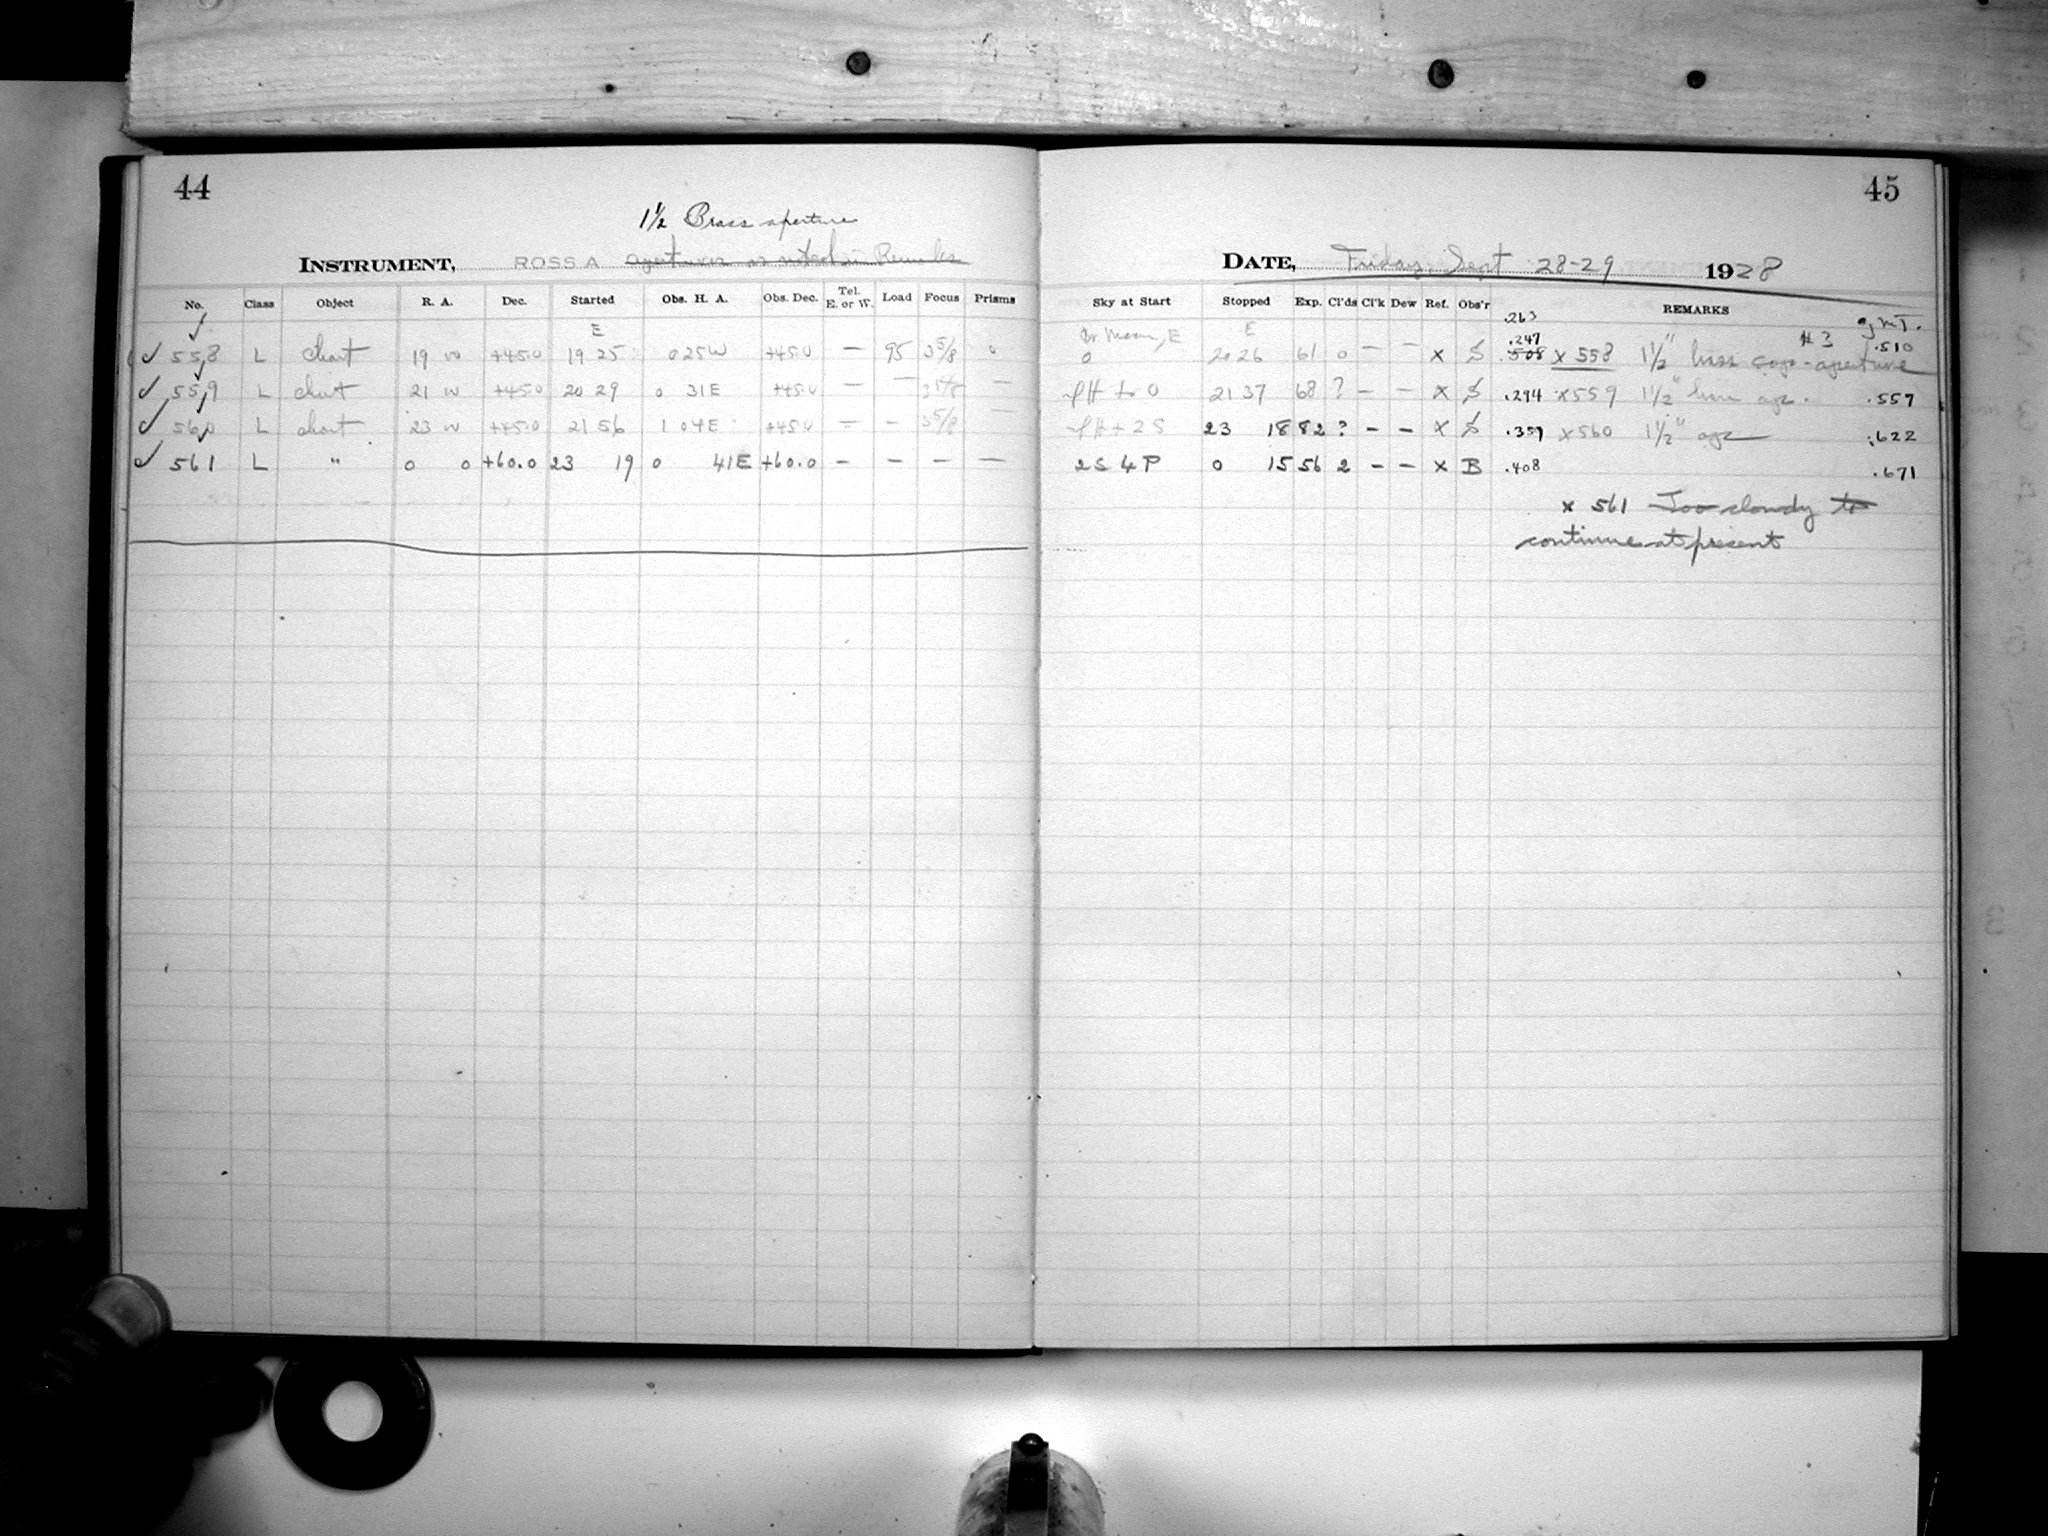 44
1½ Brass aperture
INSTRUMENT, ROSS A apertures as noted in Remarks
No. Class Object R. A. Dec. Started Obs. H. A. Obs. Dec. Tel. E. or W. Load Focus Prisms
E
558 L chart 19 w +45.0 19 25 0 25W +45.0 — 95 3 5/8 0
559 L chart 21 w +45.0 20 29 0 31E +45.0 — — 3 5/8 —
560 L chart 23 w +45.0 21 56 1 04E +45.0 — - 3 5/8 —
561 L " 0 0 +60.0 23 19 0 41E +60.0 — — — —
45
DATE, Friday, Sept 28-29 1928
Sky at Start Stopped Exp. Cl'ds Cl'k Dew Ref. Obs'r REMARKS
Br Moon, E E .263 G.M.T.
.247 #3 .510
0 20 26 61 0 — — x S .508 x 558 1½" brass cap-aperture
PH to 0 21 37 68 ? — — x S .294 x559 1½" ap. .557
PH + 2S 23 18 82 ? — — x S .359 x560 1½" ap .622
2S 4P 0 15 56 2 — — x B .408 .671
x 561 Too cloudy to
continue at present